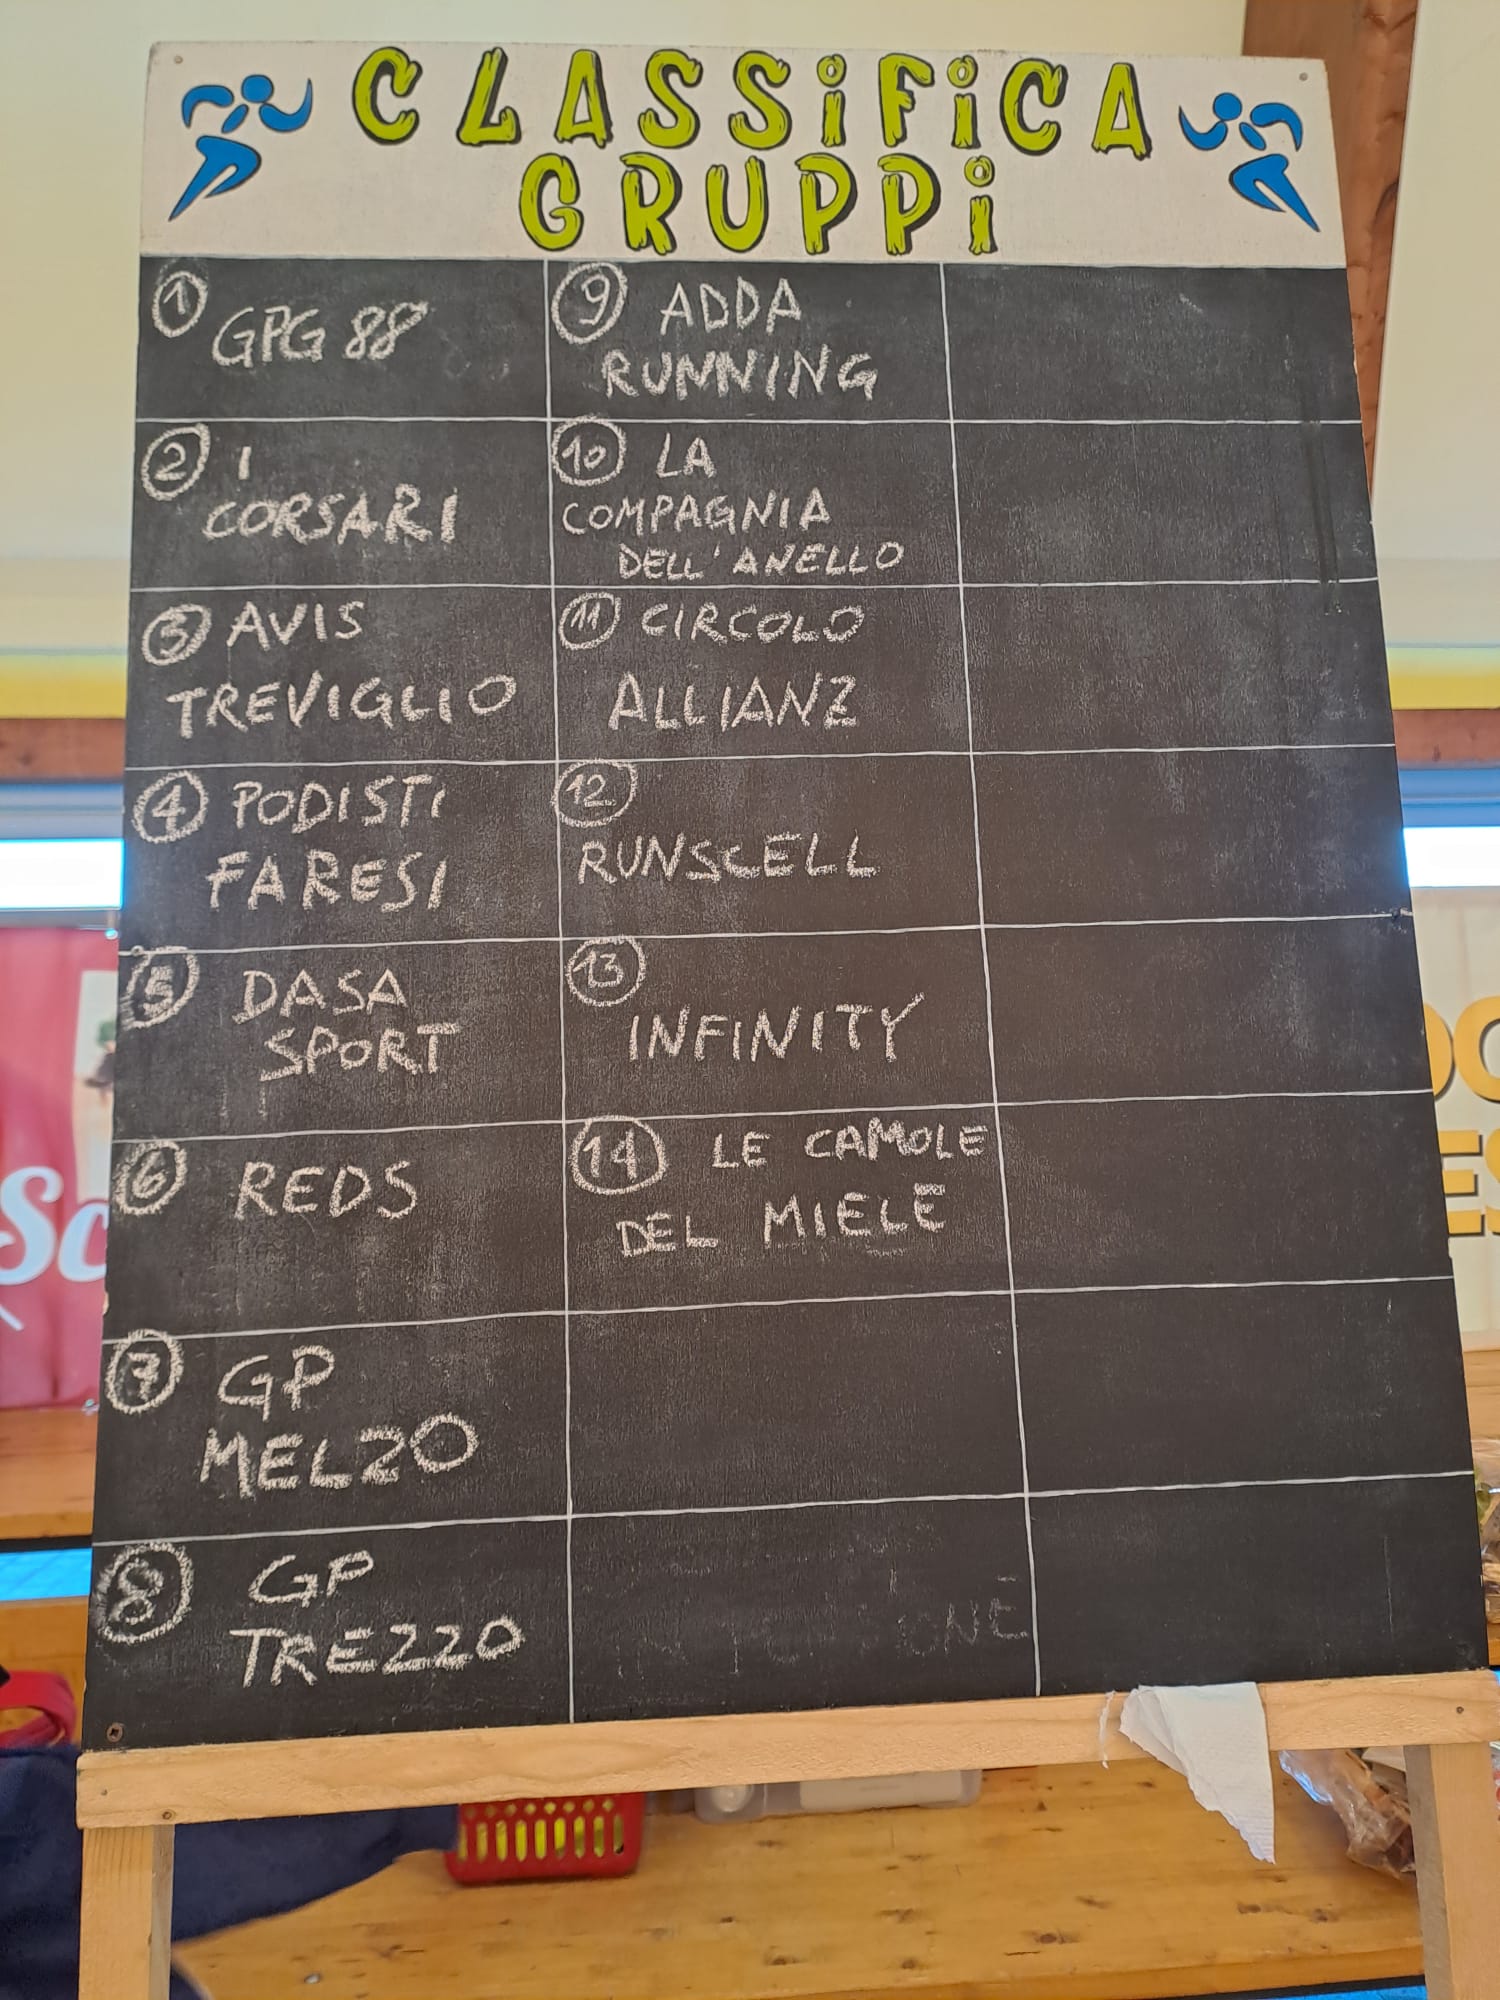 CLASSiFiCA
GRUPPi
1 GPG 88
2 I
CORSARI
3 AVIS
TREVIGLIO
4 PODISTI
FARESI
5 DASA
SPORT
6 REDS
7 GP
MELZO
8 GP
TREZZO
9 ADDA
RUNNING
10 LA
COMPAGNIA
DELL'ANELLO
11 CIRCOLO
ALLIANZ
12
RUNSCELL
13
INFINITY
14 LE CAMOLE
DEL MIELE
Sc